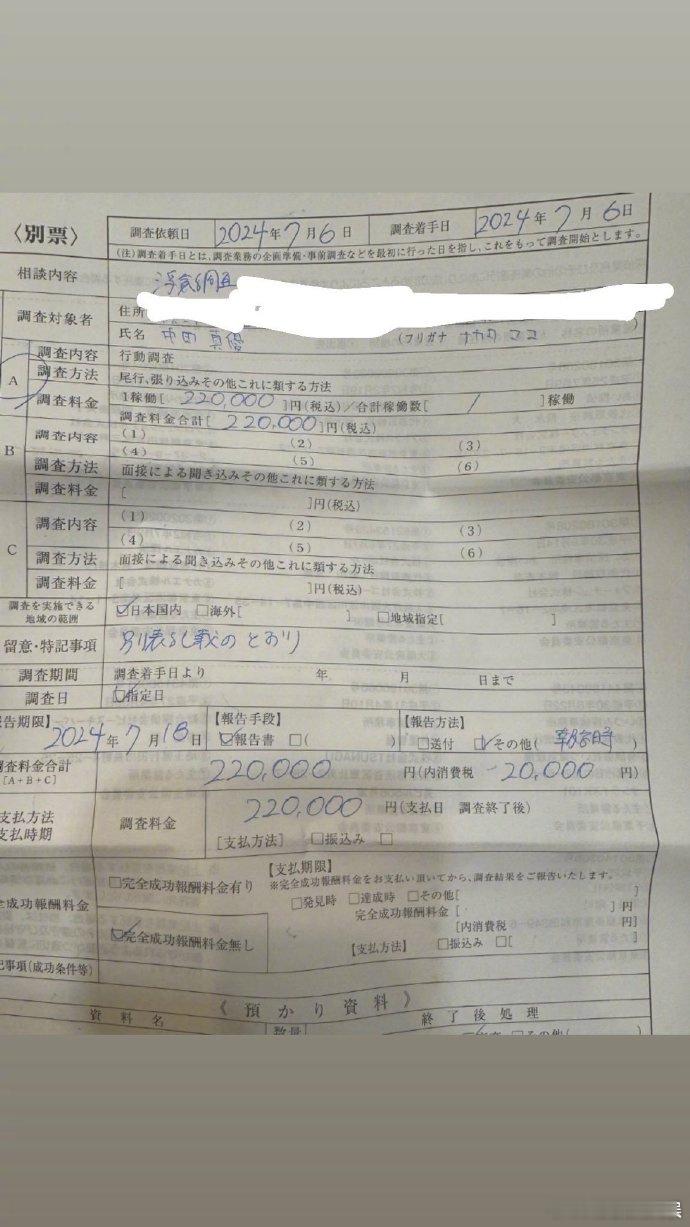 〈別票〉
調査依頼日 2024年7月6日 調査着手日 2024年7月6日
(注)調査着手日とは、調査業務の企画準備・事前調査などを最初に行った日を指し、これをもって調査開始とします。
相談内容 浮気調査
調査対象者 住所
氏名 中田 真優 (フリガナ ナカタ マユ )
A 調査内容 行動調査
調査方法 尾行、張り込みその他これに類する方法
調査料金 1稼働[ 220,000 ]円(税込)/合計稼働数[ 1 ]稼働
調査料金合計[ 220,000 ]円(税込)
B 調査内容 (1) (2) (3)
(4) (5) (6)
調査方法 面接による聞き込みその他これに類する方法
調査料金 [ ]円(税込)
C 調査内容 (1) (2) (3)
(4) (5) (6)
調査方法 面接による聞き込みその他これに類する方法
調査料金 [ ]円(税込)
調査を実施できる地域の範囲 ☑日本国内 □海外[ ] □地域指定[ ]
留意・特記事項 のとおり
調査期間 調査着手日より 年 月 日まで
調査日 ☑指定日
報告期限】 2024年7月18日 【報告手段】 ☑報告書 □( ) 【報告方法】 □送付 ☑その他( )
調査料金合計 [A+B+C] 220,000 円(内消費税 20,000 円)
支払方法 支払時期 調査料金 220,000 円(支払日 調査終了後)
[支払方法] □振込み □
完全成功報酬料金 □完全成功報酬料金有り 【支払期限】
※完全成功報酬料金をお支払い頂いてから、調査結果をご報告いたします。
□発見時 □達成時 □その他[ ]
完全成功報酬料金 [ ]円
[内消費税 円]
☑完全成功報酬料金無し 【支払方法】 □振込み □[ ]
記事項(成功条件等)
《 預かり資料 》
資料名 数量 終了後処理
□その他( )